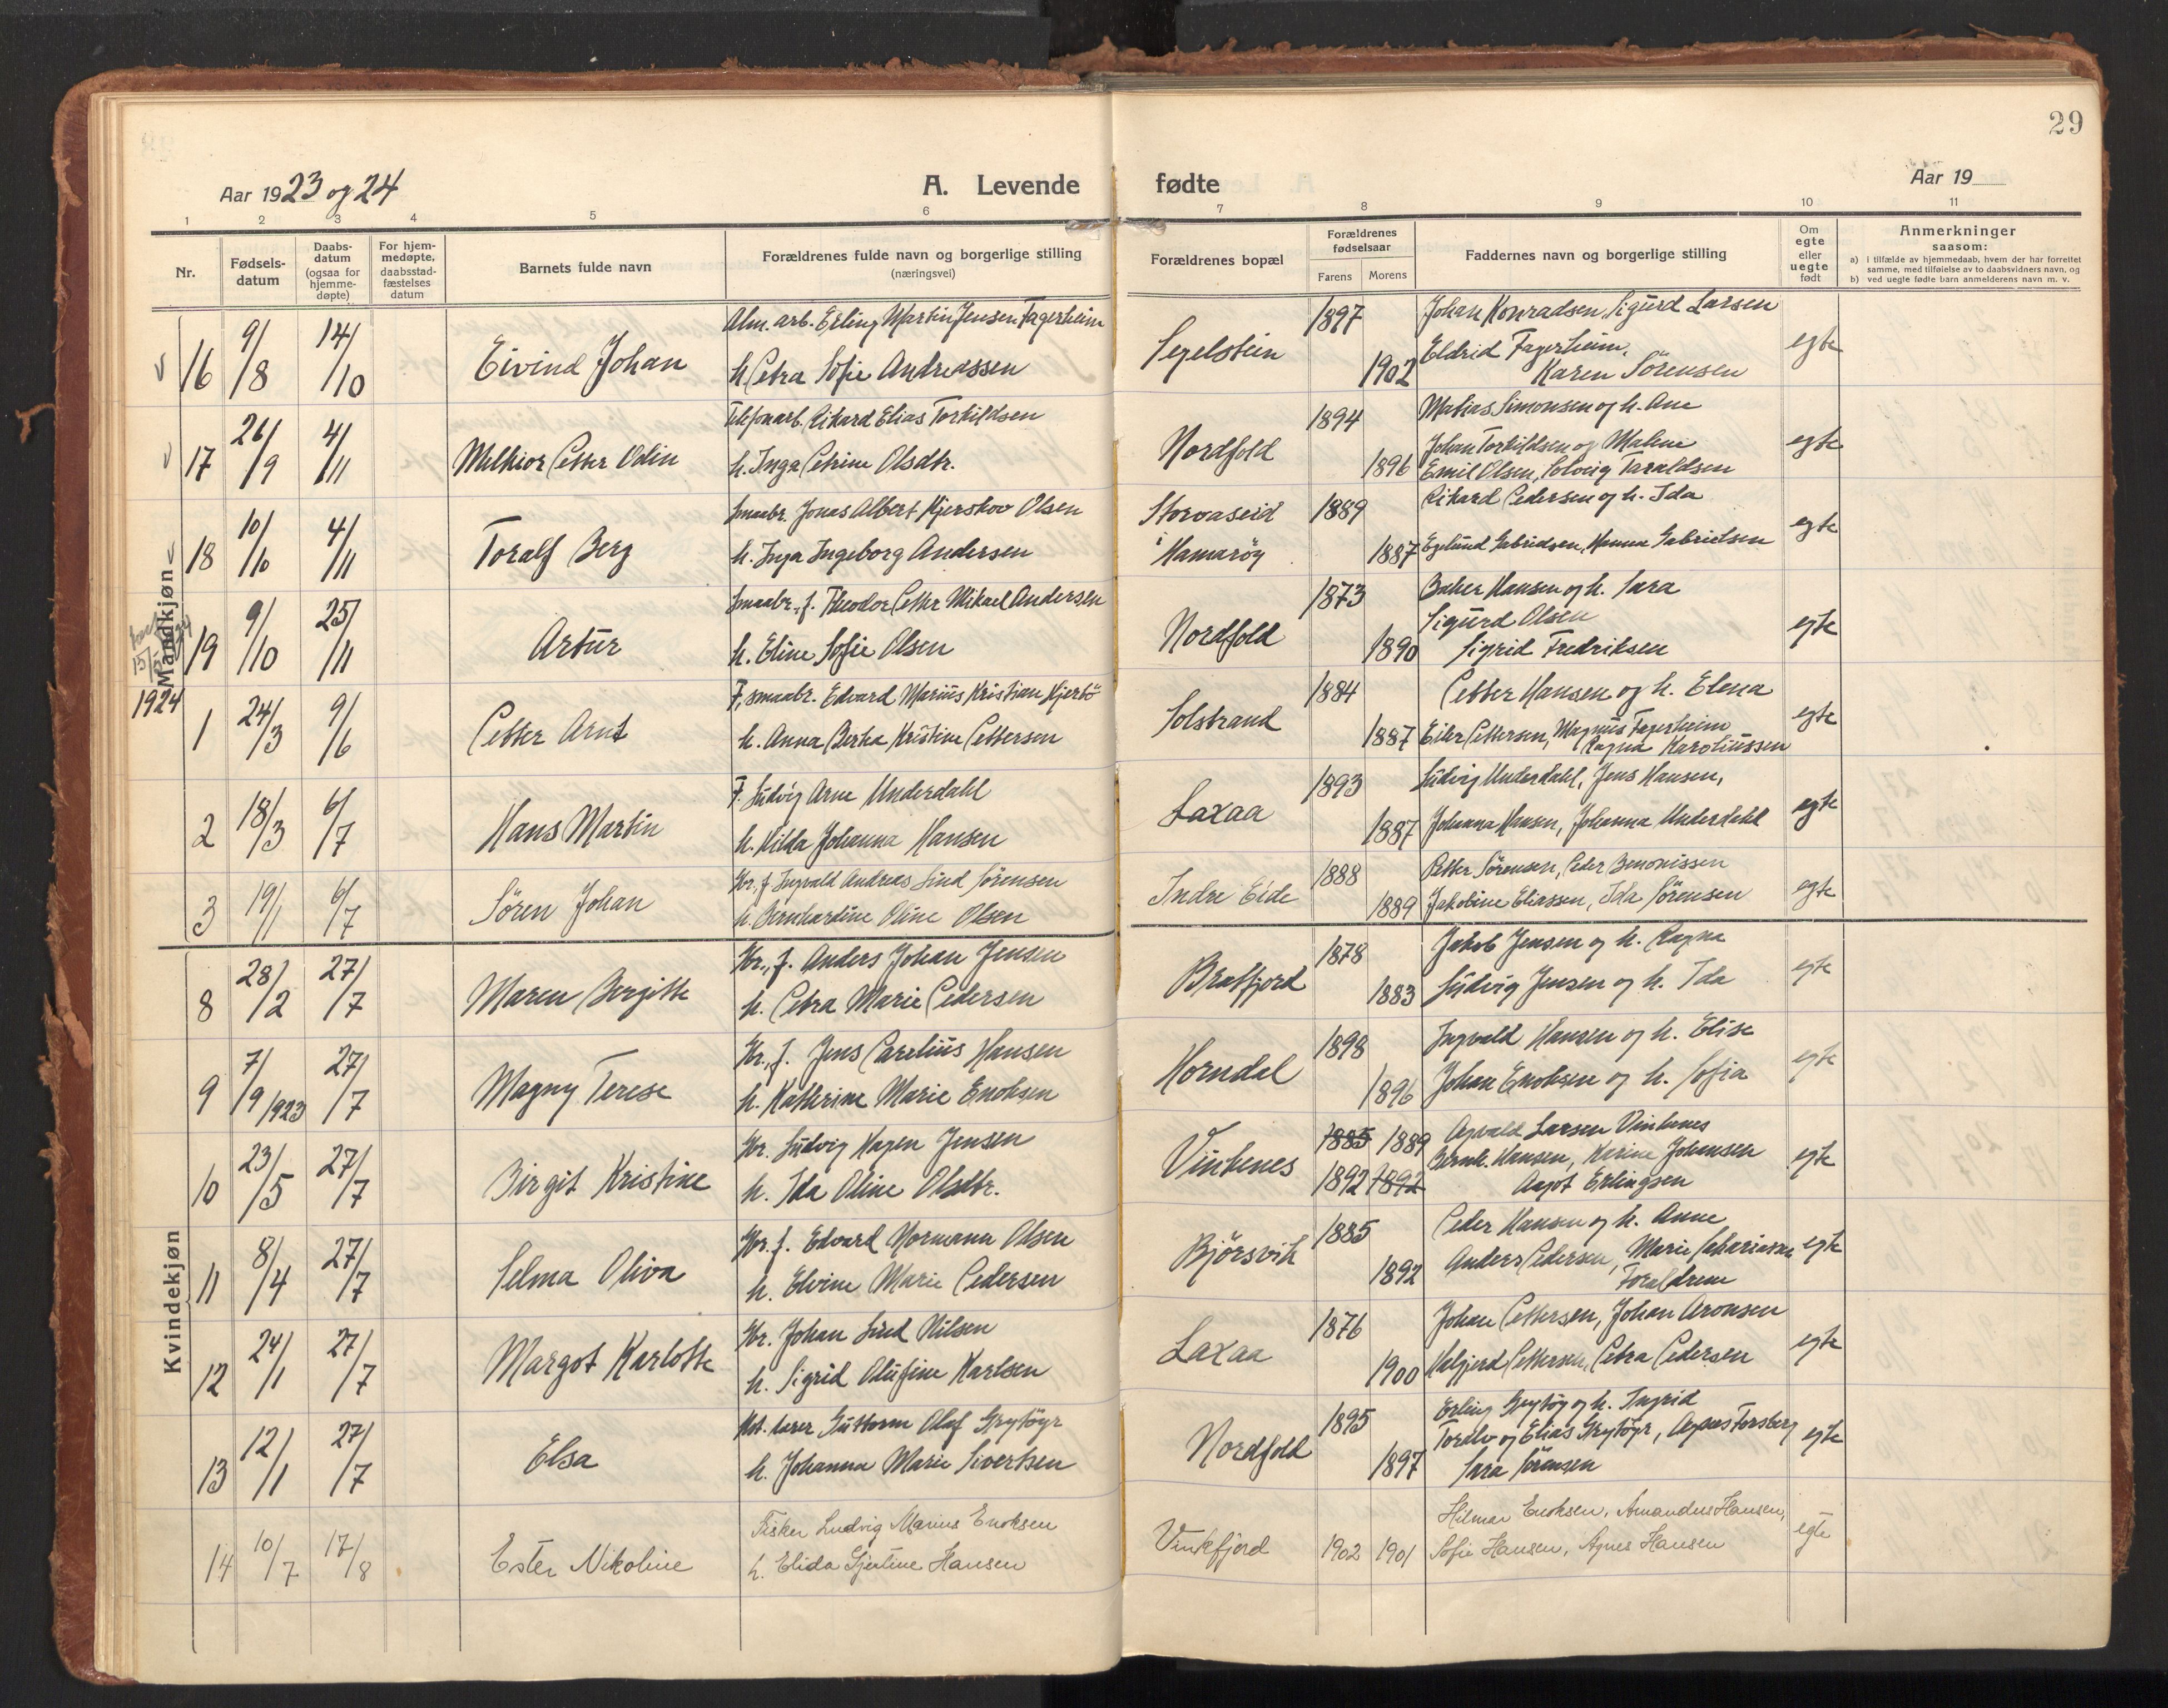 29
Aar 1923 og 24
A. Levende
fødte
Aar 19
1 2 3 4 5 6 7 8 9 10 11
Nr.
Fødsels-
datum
Daabs-
datum
(ogsaa for
hjemme-
døpte)
For hjem-
medøpte,
daabsstad-
fæstelses
datum
Barnets fulde navn
Forældrenes fulde navn og borgerlige stilling
(næringsvei)
Forældrenes bopæl
Forældrenes
fødselsaar
Farens Morens
Faddernes navn og borgerlige stilling
Om
egte
eller
uegte
født
Anmerkninger
saasom:
a) i tilfælde av hjemmedaab, hvem der har forrettet
samme, med tilføielse av to daabsvidners navn, og
b) ved uegte fødte barn anmelderens navn m. v.
Mandkjøn
Alm. arb. Erling Martin Jensen Fagerheim 1897 Johan Konradsen, Sigurd Larsen
16 9/8 14/10 Eivind Johan Segelstein Eldrid Fagerheim, egte
h. Petra Sofie Andreassen 1902 Karen Sörensen
Telefonarb. Rikard Elias Torkildsen 1894 Matias Simonsen og h. Ane
17 26/9 4/11 Melkior Petter Odin Nordfold Johan Torkildsen og Malene egte
h. Inga Petrine Olsdtr. 1896 Emil Olsen, Solveig Taraldsen
Smaabr. Jonas Albert Kjerskov Olsen Storvaseid 1889 Rikard Pedersen og h. Ida
18 10/10 4/11 Toralf Berg egte
h. Inga Ingeborg Andersen i Hamaröy 1887 Gabrielsen, Hanna Gabrielsen
Smaabr., f. Theodor Petter Mikael Andersen 1873 Hansen og h. Sara
19 9/10 25/11 Artur Nordfold Sigurd Olsen egte
h. Eline Sofie Olsen 1890 Sigrid Fredriksen
1924
F, smaabr. Edvard Marius Kristian Kjerbö 1884 Petter Hansen og h. Elena
1 24/3 9/6 Petter Arnt Solstrand egte
h. Anna Berha Kristine Pettersen 1887 Eiler Pettersen, Magnus Fagerheim
Ragna Karoliussen
F. Ludvig Arne Underdahl 1893 Ludvig Underdahl, Jens Hansen,
2 18/3 6/7 Hans Martin Laxaa egte
h. Hilda Johanna Hansen 1887 Johanna Hansen, Johanna Underdahl
Gbr., f Ingvald Andreas Lind Sörensen 1888 Petter Sörensen, Peder Benonissen
3 19/1 6/7 Sören Johan Indre Eide egte
h. Bernhardine Oline Olsen 1889 Jakobine Eliassen, Ida Sörensen
Kvindekjøn
Gbr., f. Anders Johan Jensen 1878 Jakob Jensen og h. Ragna
8 28/2 27/7 Maren Bergitte Bratfjord egte
h. Petra Marie Pedersen 1883 Ludvig Jensen og h. Ida
Gbr., f. Jens Carelius Hansen 1898 Ingvald Hansen og h. Elise
9 7/9/923 27/7 Magny Terese Horndal egte
h. Kathrine Marie Enoksen 1896 Johan Enoksen og h. Sofia
Gbr. Ludvig Hagen Jensen 1885 1889 Agvald Larsen Vinkenes
10 23/5 27/7 Birgit Kristine Vinkenes Bernh. Hansen, Karine Johansen egte
h. Ida Oline Olsdtr. 1892 1892 Aagot Erlingsen
Gbr. f. Edvard Normann Olsen 1885 Peder Hansen og h. Anne
11 8/4 27/7 Selma Oliva Bjørsvik Anders Pedersen, Marie Sakariassen egte
h. Elvine Marie Pedersen 1892 Foreldrene
Gbr. Johan Lind Nilsen 1876 Johan Pettersen, Johan Aronsen
12 24/1 27/7 Margot Karlotte Laxaa egte
h. Sigrid Olufine Karlsen 1900 Valgjerd Pettersen, Petra Pedersen
Guttorm Olaf Grytöyr 1895 Erling Grytöy og h. Ingrid
13 12/1 27/7 Elsa Nordfold Toralv og Elias Grytöyr, Agnes Forsberg egte
h. Johanna Marie Sivertsen 1897 Sara Sörensen
Fisker Ludvig Marius Enoksen Hilmar Enoksen, Amandus Hansen,
14 10/7 17/8 Ester Nikoline Vinkfjord 1902 1901 egte
h. Elida Gjertine Hansen Sofie Hansen, Agnes Hansen